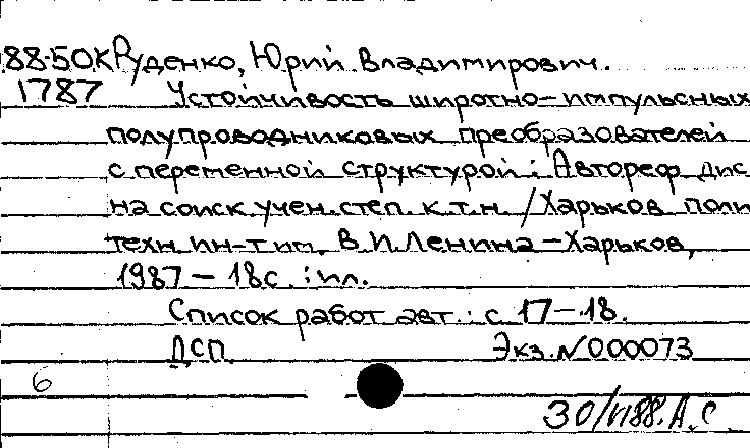 88-50К Руденко, Юрий Владимирович.
1787 Устойчивость широтно-импульсных
полупроводниковых преобразователей
с переменной структурой: Автореф дис
на соиск учен. степ. к.т.н. /Харьков поли
техн ин-т им. В.И.Ленина – Харьков,
1987 – 18с. : ил.
Список работ авт. : с 17–18.
ДСП Экз. N000073
6
30/VI88. А.С